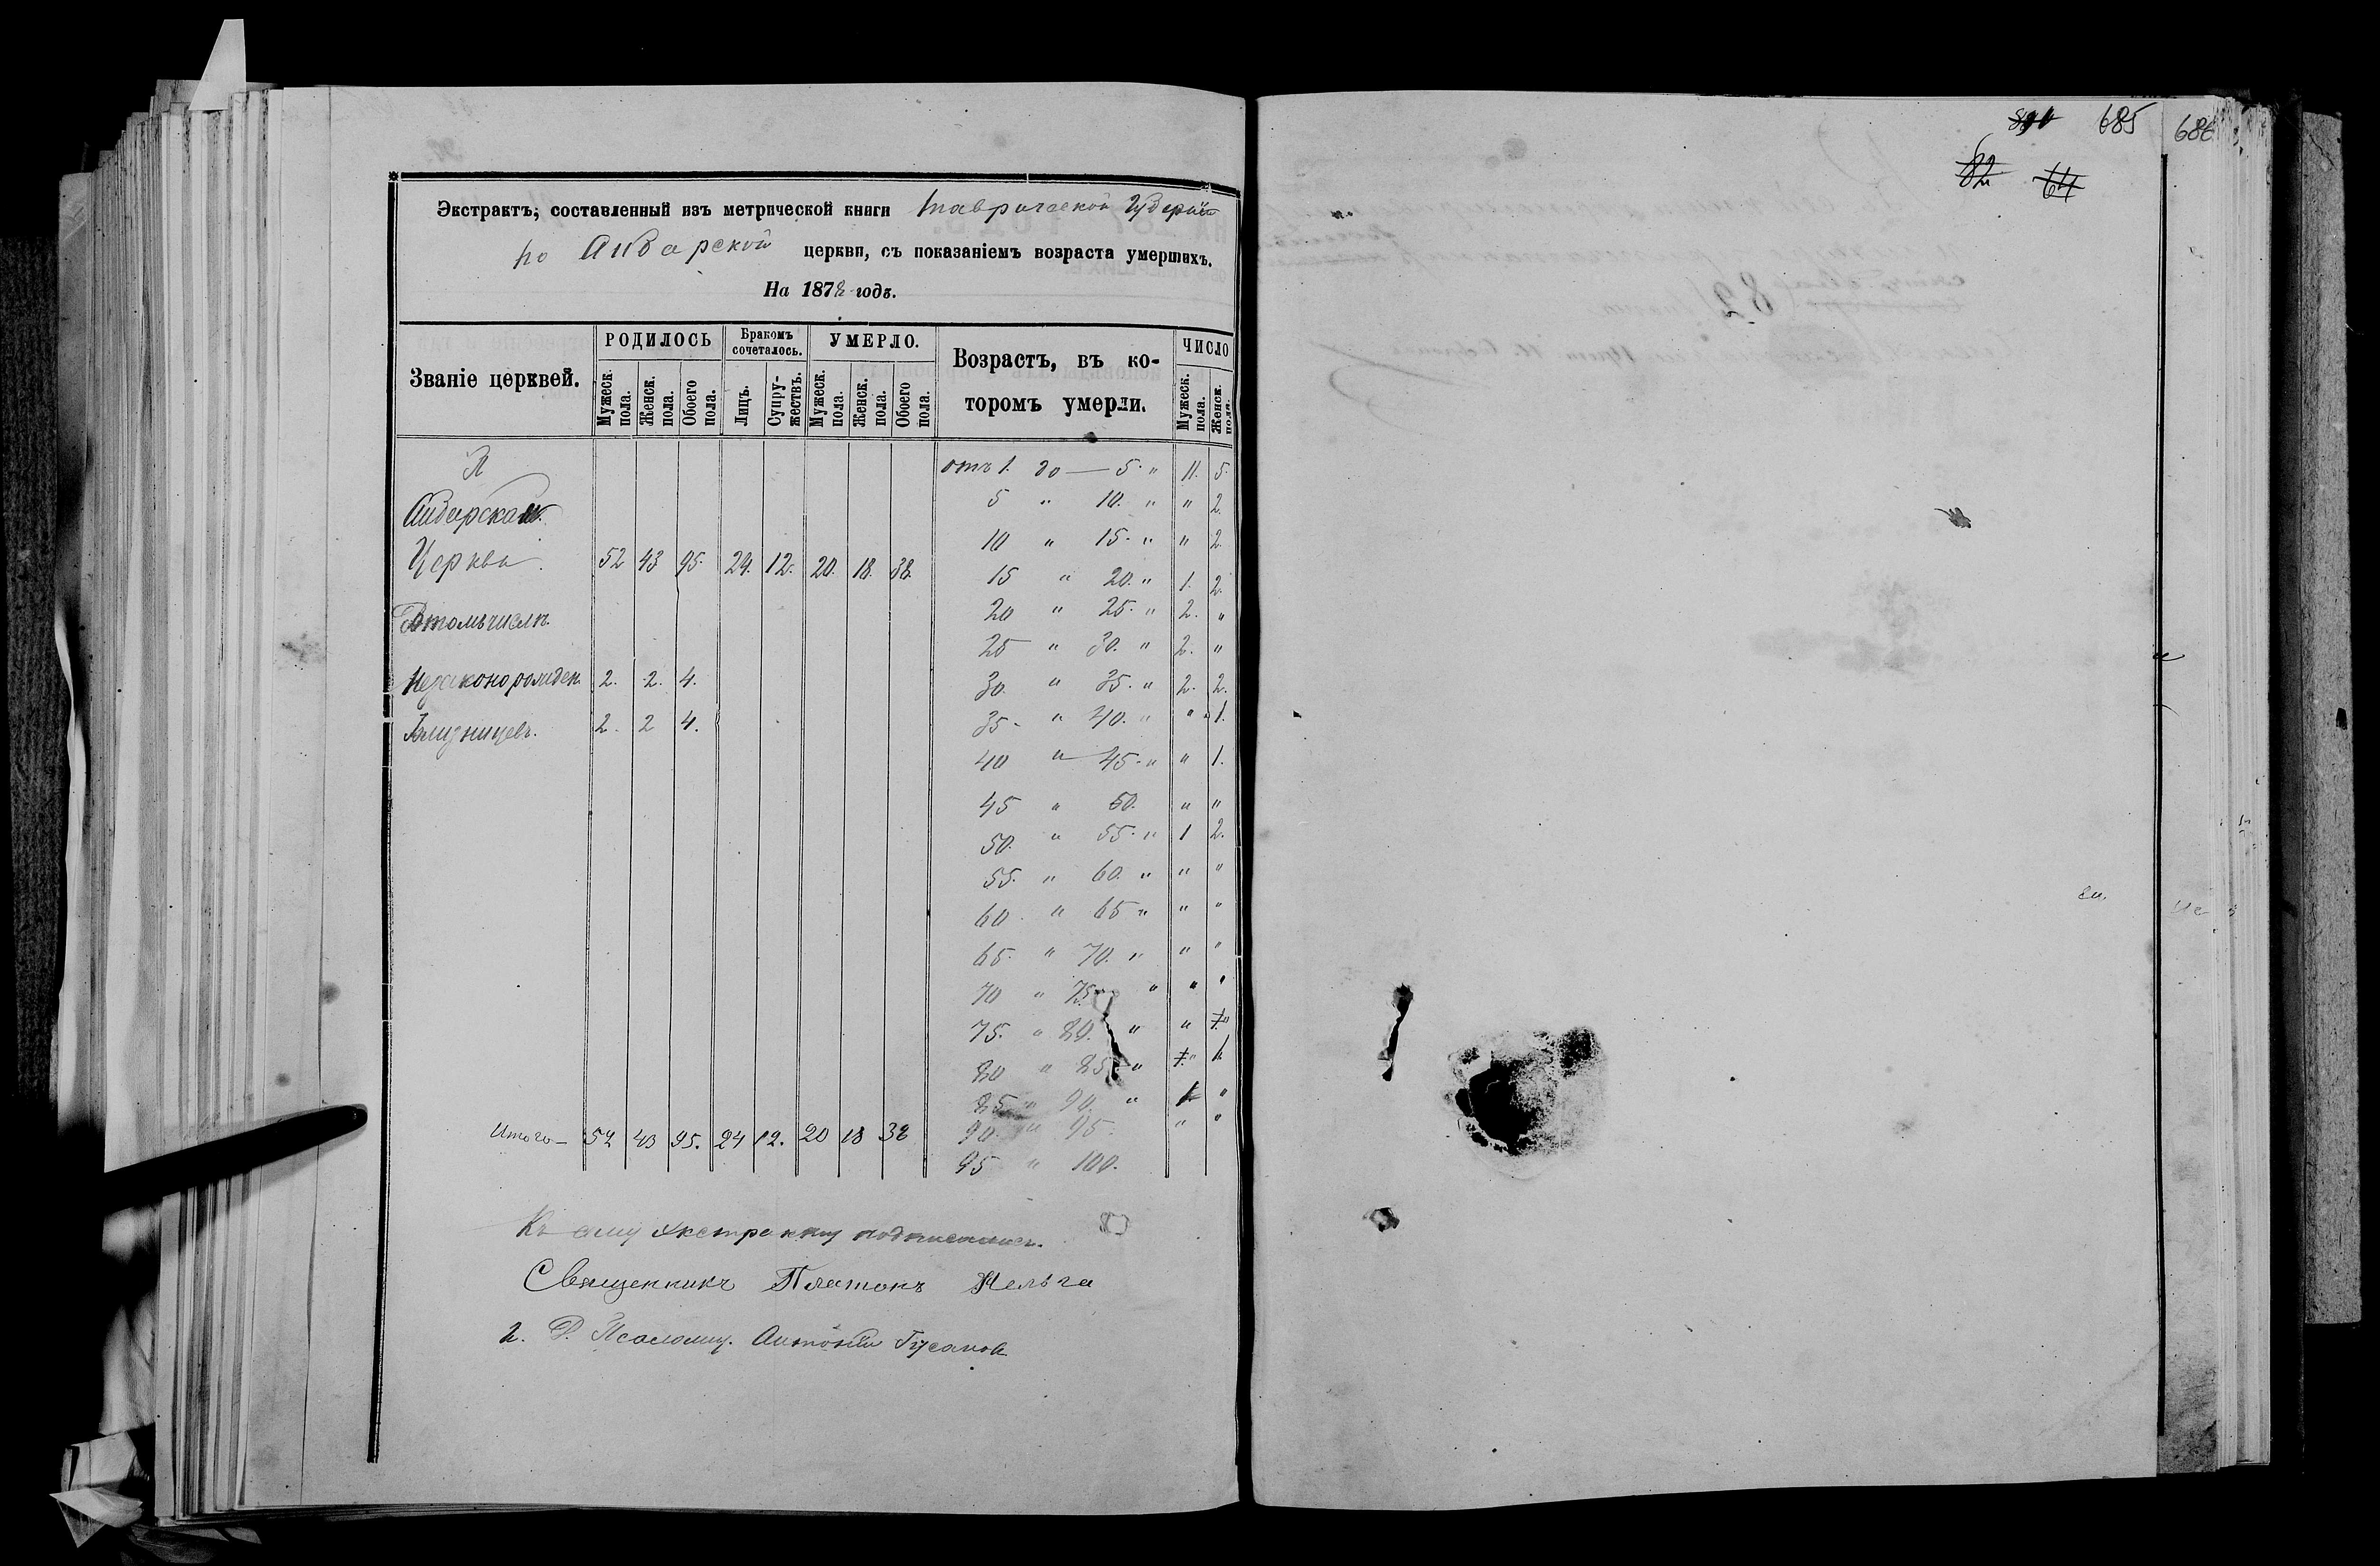 Экстрактъ, составленный изъ метрической книги Таврической Губерніи
по Аибарской церкви, съ показаніемъ возраста умершихъ.
На 1878 годъ.
Званіе церквей. РОДИЛОСЬ Бракомъ сочеталось. УМЕРЛО. Возрастъ, въ которомъ умерли. ЧИСЛО
Мужеск. пола. Женск. пола. Обоего пола. Лицъ. Супружествъ. Мужеск. пола. Женск. пола. Обоего пола. Мужеск. пола. Женск. пола.
отъ 1. до — 5. " 11. 5.
Аибарская
5 " 10. " " 2.
10 " 15. " " 2.
Церковь 52 43 95. 24. 12. 20. 18. 38.
15 " 20. " 1. 2.
Въ томъ числѣ
20 " 25. " 2. "
25 " 30. " 2. "
Незаконорожден. 2. 2. 4.
30. " 35. " 2. 2.
Близнецовъ. 2. 2 4.
35. " 40. " " 1.
40 " 45. " " 1.
45 " 50. " "
50. " 55. " 1 2.
55. " 60. " " "
60. " 65 " " "
65. " 70. " " "
70 " 75. " " "
75. " 80. " "
80 " 85. " 1
85. " 90. " 1 "
90. " 95. " "
Итого — 52 43 95. 24 12. 20 18 38
95 " 100.
Къ сему экстракту подписались.
Священникъ Платонъ
2. Псаломщ. Антоній Гусаковъ
685
686
82
64